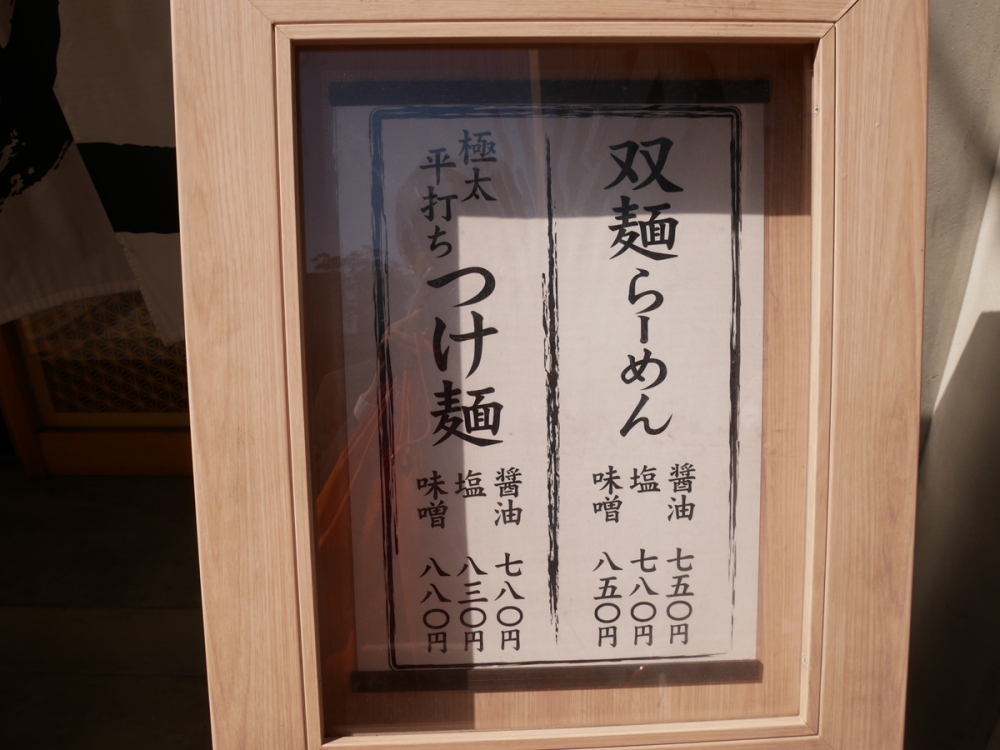 双麺らーめん
醤油 七五〇円
塩 七八〇円
味噌 八五〇円
極太
平打ち
つけ麺
醤油 七八〇円
塩 八三〇円
味噌 八八〇円